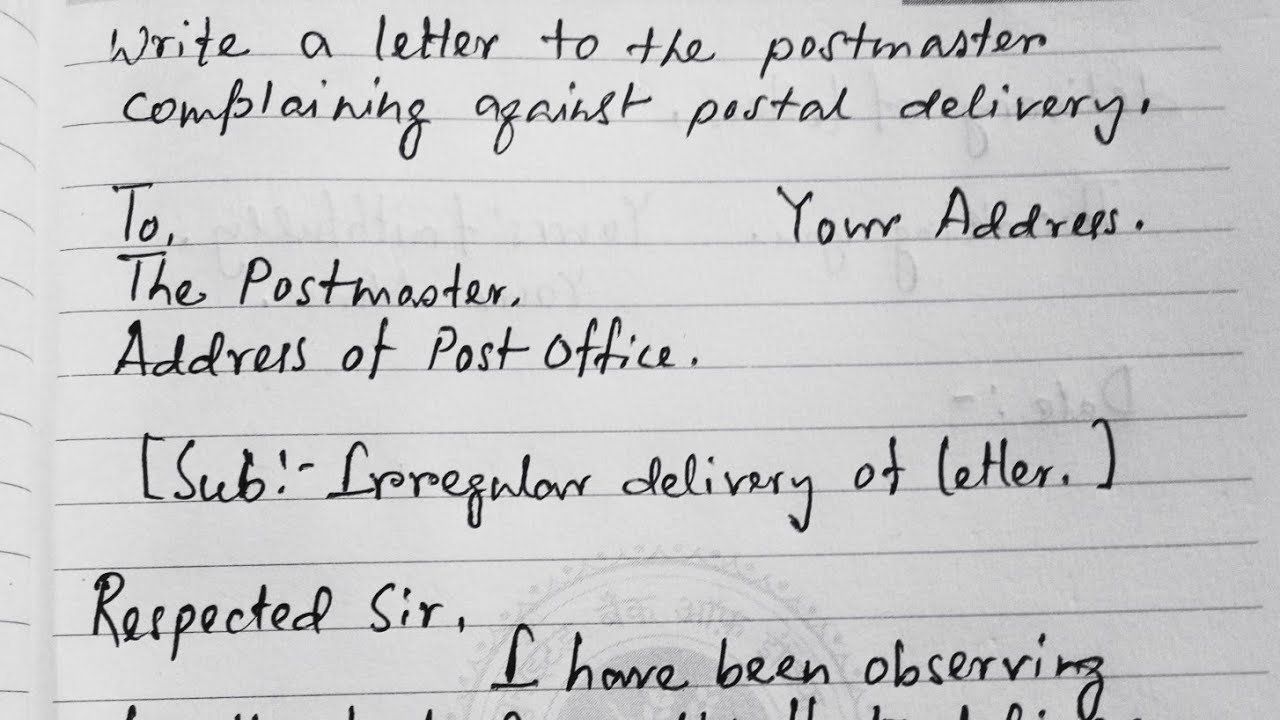 Write a letter to the postmaster
complaining against postal delivery.
To, Your Address.
The Postmaster.
Address of Post Office.
[Sub:- Irregular delivery of letter.]
Respected Sir,
I have been observing